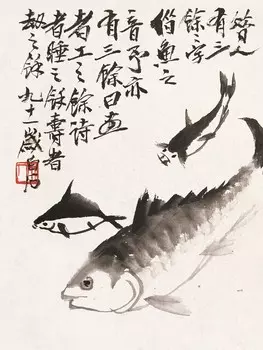 昔人
有三
餘字
借魚之
音予亦
有三餘曰畫
者工之餘詩
者睡之餘壽者
劫之餘九十一歲白石